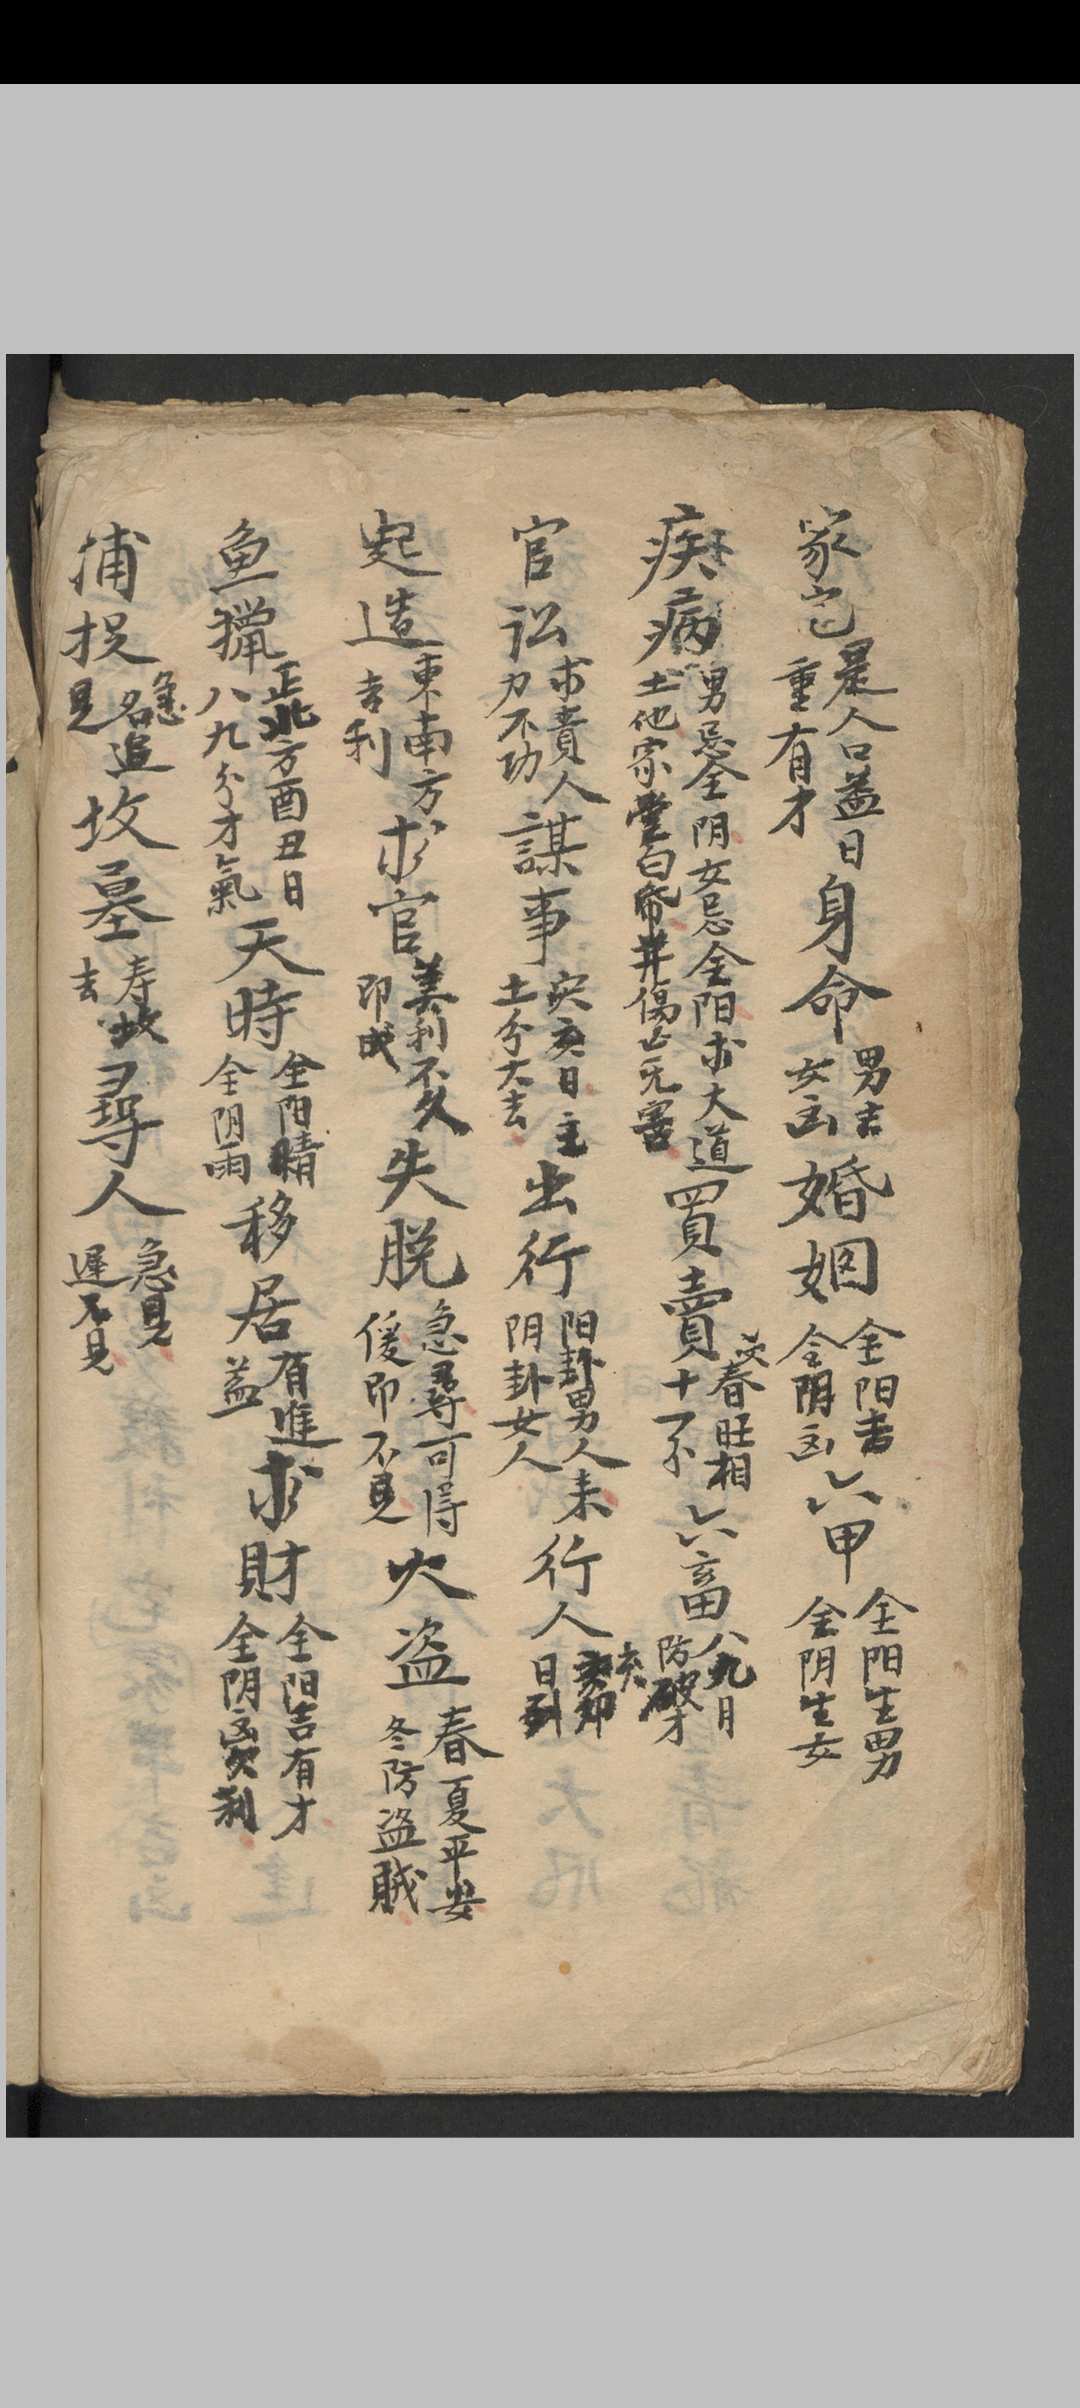 家宅是人口益日重有才身命男吉女凶婚姻全阳吉全阴凶六甲全阳生男全阴生女
疾病男忌全阴女忌全阳求大道土地家堂白帝井傷亡无害買賣交春旺相十不六畜八九月防破才
官讼求責人刀不功謀事亥日主土分大去出行阳卦男人来阴卦女人行人亥卯日到
起造東南方吉利求官美利不久即成失脱急尋可得緩即不見火盗春夏平安冬防盗賊
鱼獵正北方酉丑日八九分才氣天時全阳晴全阴雨移居有進益求財全阳吉有才全阴利
浦捉急名追見坟墓寿坟去尋人急見遲不見